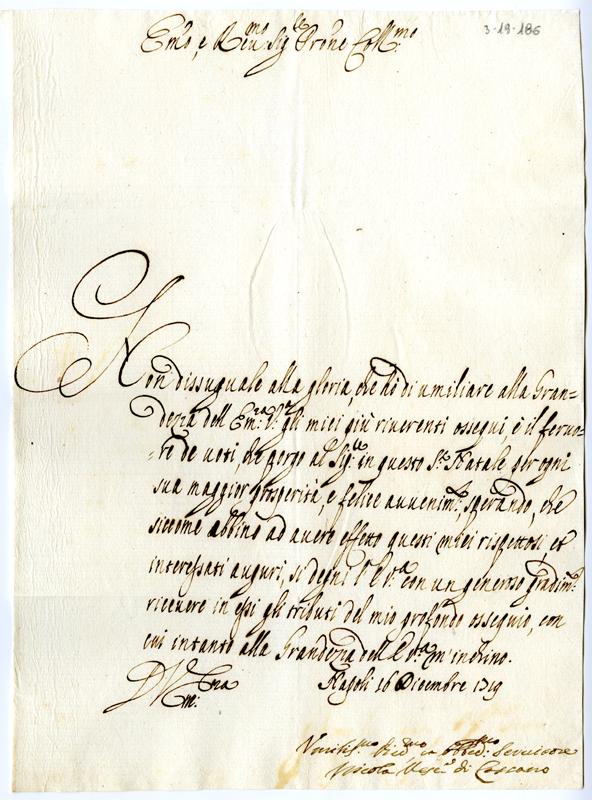 3-19-186
Em̃o, e Reu:mo Sig:re Prõne Coll:mo
Non dissuguale alla gloria, che hò di umiliare alla Gran=
dezza dell'Em:ra V:ra gli miei più riuerenti ossequi, è il feruo=
=re de uoti, che porgo al Sig:re in questo S:to Natale per ogni
sua maggior prosperità, e felice auuenim:to, sperando, che
siccome abbino ad auere effetto questi miei rispettosi et
interessati auguri, si degni l'E V:ra con un generoso gradim:to
riceuere in essi gli tributi del mio profondo ossequio, con
cui intanto alla Grandezza dell'E V:ra m'inchino.
D V Em:ra Napoli 16 Dicembre 1719
Diu:mo ed Obbed:mo Seruitore
Nicola Vesc:o di